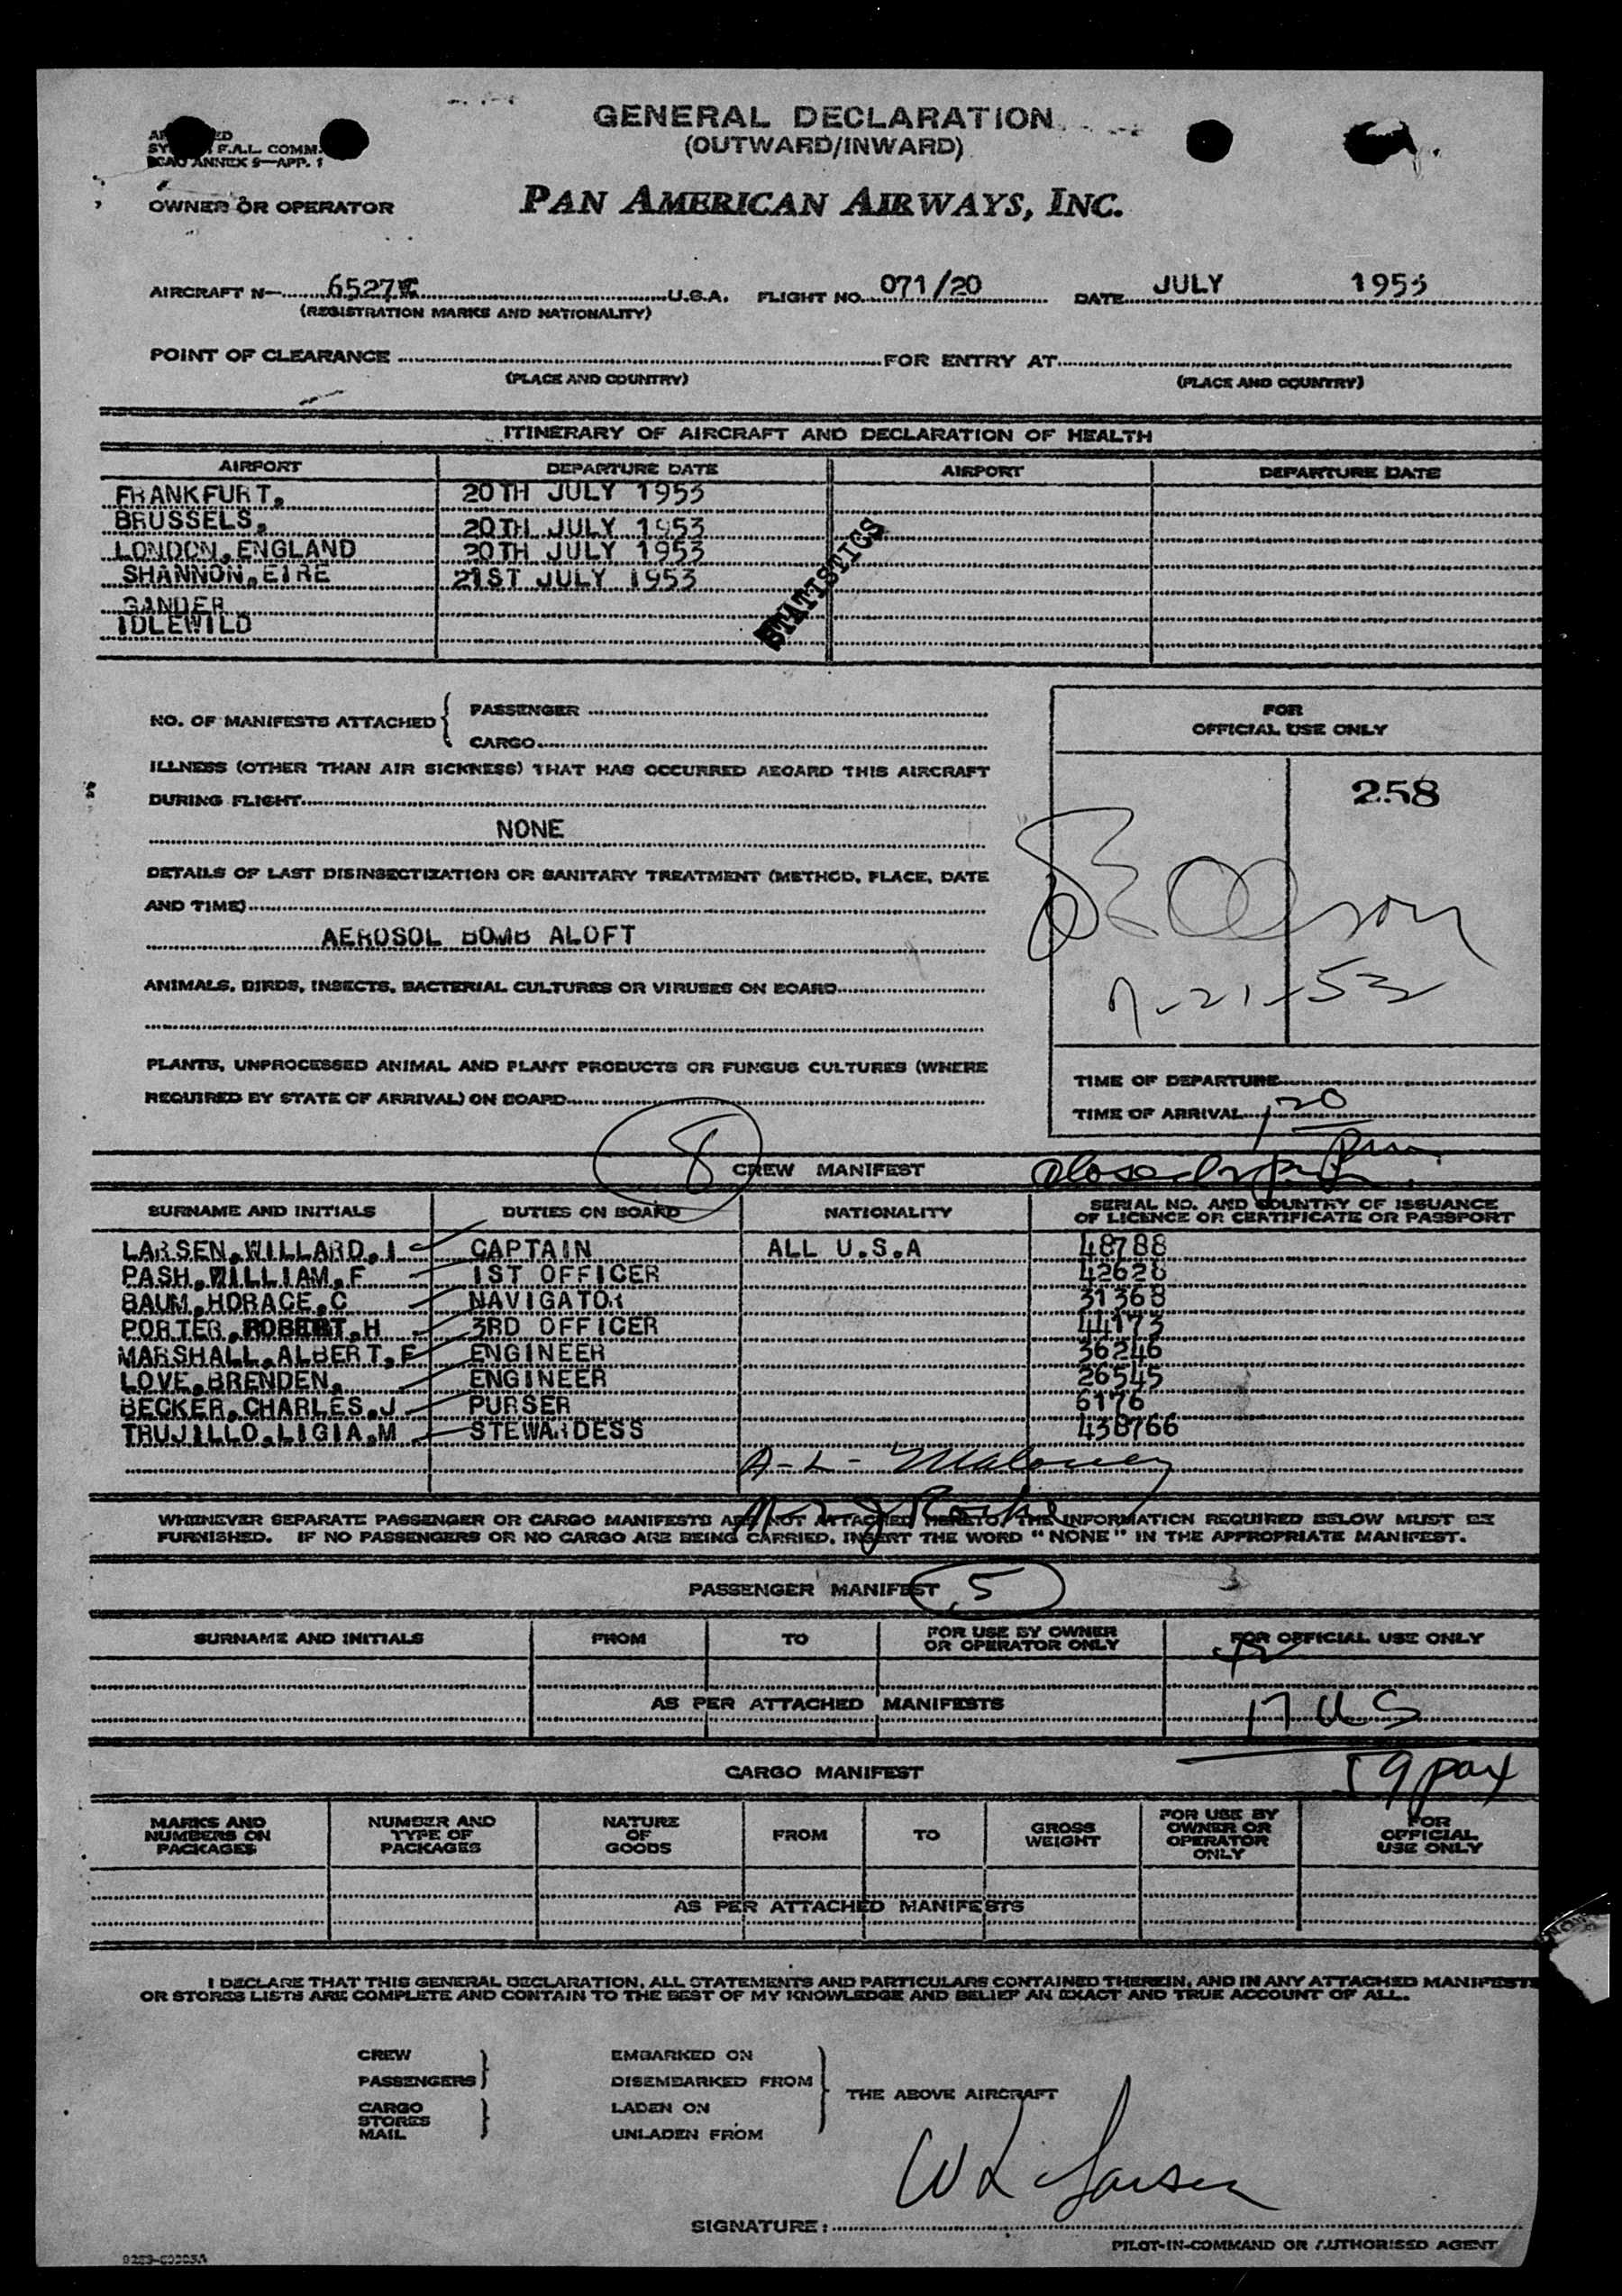 GENERAL DECLARATION
(OUTWARD/INWARD)
F.A.L. COMM.
ICAO ANNEX 9—APP. 1
OWNER OR OPERATOR PAN AMERICAN AIRWAYS, INC.
AIRCRAFT N— 6527 U.S.A. FLIGHT NO. 071/20 DATE JULY 1953
(REGISTRATION MARKS AND NATIONALITY)
POINT OF CLEARANCE FOR ENTRY AT
(PLACE AND COUNTRY) (PLACE AND COUNTRY)
ITINERARY OF AIRCRAFT AND DECLARATION OF HEALTH
AIRPORT DEPARTURE DATE AIRPORT DEPARTURE DATE
FRANKFURT, 20TH JULY 1953
BRUSSELS, 20TH JULY 1953
LONDON, ENGLAND 20TH JULY 1953
SHANNON, EIRE 21ST JULY 1953
GANDER
IDLEWILD
STATISTICS
NO. OF MANIFESTS ATTACHED { PASSENGER
CARGO
FOR
OFFICIAL USE ONLY
258
ILLNESS (OTHER THAN AIR SICKNESS) THAT HAS OCCURRED ABOARD THIS AIRCRAFT
DURING FLIGHT
NONE
DETAILS OF LAST DISINSECTIZATION OR SANITARY TREATMENT (METHOD, PLACE, DATE
AND TIME)
AEROSOL BOMB ALOFT
7-21-53
ANIMALS, BIRDS, INSECTS, BACTERIAL CULTURES OR VIRUSES ON BOARD
PLANTS, UNPROCESSED ANIMAL AND PLANT PRODUCTS OR FUNGUS CULTURES (WHERE
REQUIRED BY STATE OF ARRIVAL) ON BOARD
TIME OF DEPARTURE
TIME OF ARRIVAL 1 20 pm
8
CREW MANIFEST
SURNAME AND INITIALS DUTIES ON BOARD NATIONALITY SERIAL NO. AND COUNTRY OF ISSUANCE
OF LICENCE OR CERTIFICATE OR PASSPORT
LARSEN, WILLARD, I CAPTAIN ALL U.S.A 48788
PASH, WILLIAM, F 1ST OFFICER 42628
BAUM, HORACE, C NAVIGATOR 31368
PORTER, ROBERT, H 3RD OFFICER 44173
MARSHALL, ALBERT, E ENGINEER 36246
LOVE, BRENDEN, ENGINEER 26545
BECKER, CHARLES, J PURSER 6176
TRUJILLO, LIGIA, M STEWARDESS 438766
A- L- Maloney
WHENEVER SEPARATE PASSENGER OR CARGO MANIFESTS ARE NOT ATTACHED HERETO, THE INFORMATION REQUIRED BELOW MUST BE
FURNISHED. IF NO PASSENGERS OR NO CARGO ARE BEING CARRIED, INSERT THE WORD "NONE" IN THE APPROPRIATE MANIFEST.
PASSENGER MANIFEST 5
SURNAME AND INITIALS FROM TO FOR USE BY OWNER
OR OPERATOR ONLY FOR OFFICIAL USE ONLY
AS PER ATTACHED MANIFESTS 17 US
CARGO MANIFEST 59 pax
MARKS AND
NUMBERS ON
PACKAGES NUMBER AND
TYPE OF
PACKAGES NATURE
OF
GOODS FROM TO GROSS
WEIGHT FOR USE BY
OWNER OR
OPERATOR
ONLY FOR
OFFICIAL
USE ONLY
AS PER ATTACHED MANIFESTS
I DECLARE THAT THIS GENERAL DECLARATION, ALL STATEMENTS AND PARTICULARS CONTAINED THEREIN, AND IN ANY ATTACHED MANIFESTS
OR STORES LISTS ARE COMPLETE AND CONTAIN TO THE BEST OF MY KNOWLEDGE AND BELIEF AN EXACT AND TRUE ACCOUNT OF ALL.
CREW EMBARKED ON
PASSENGERS DISEMBARKED FROM
THE ABOVE AIRCRAFT
CARGO LADEN ON
STORES
MAIL UNLADEN FROM
SIGNATURE: W L Larsen
PILOT-IN-COMMAND OR AUTHORISED AGENT